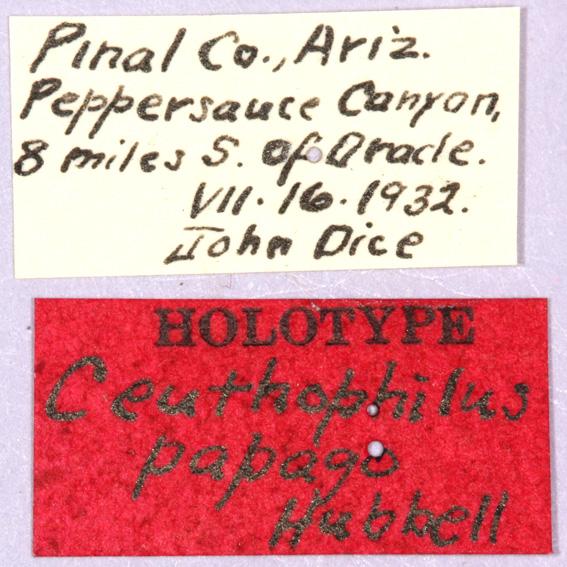 Pinal Co., Ariz.
Peppersauce Canyon,
8 miles S. of Oracle.
VII·16·1932.
John Dice
HOLOTYPE
Ceuthophilus
papago
Hubbell